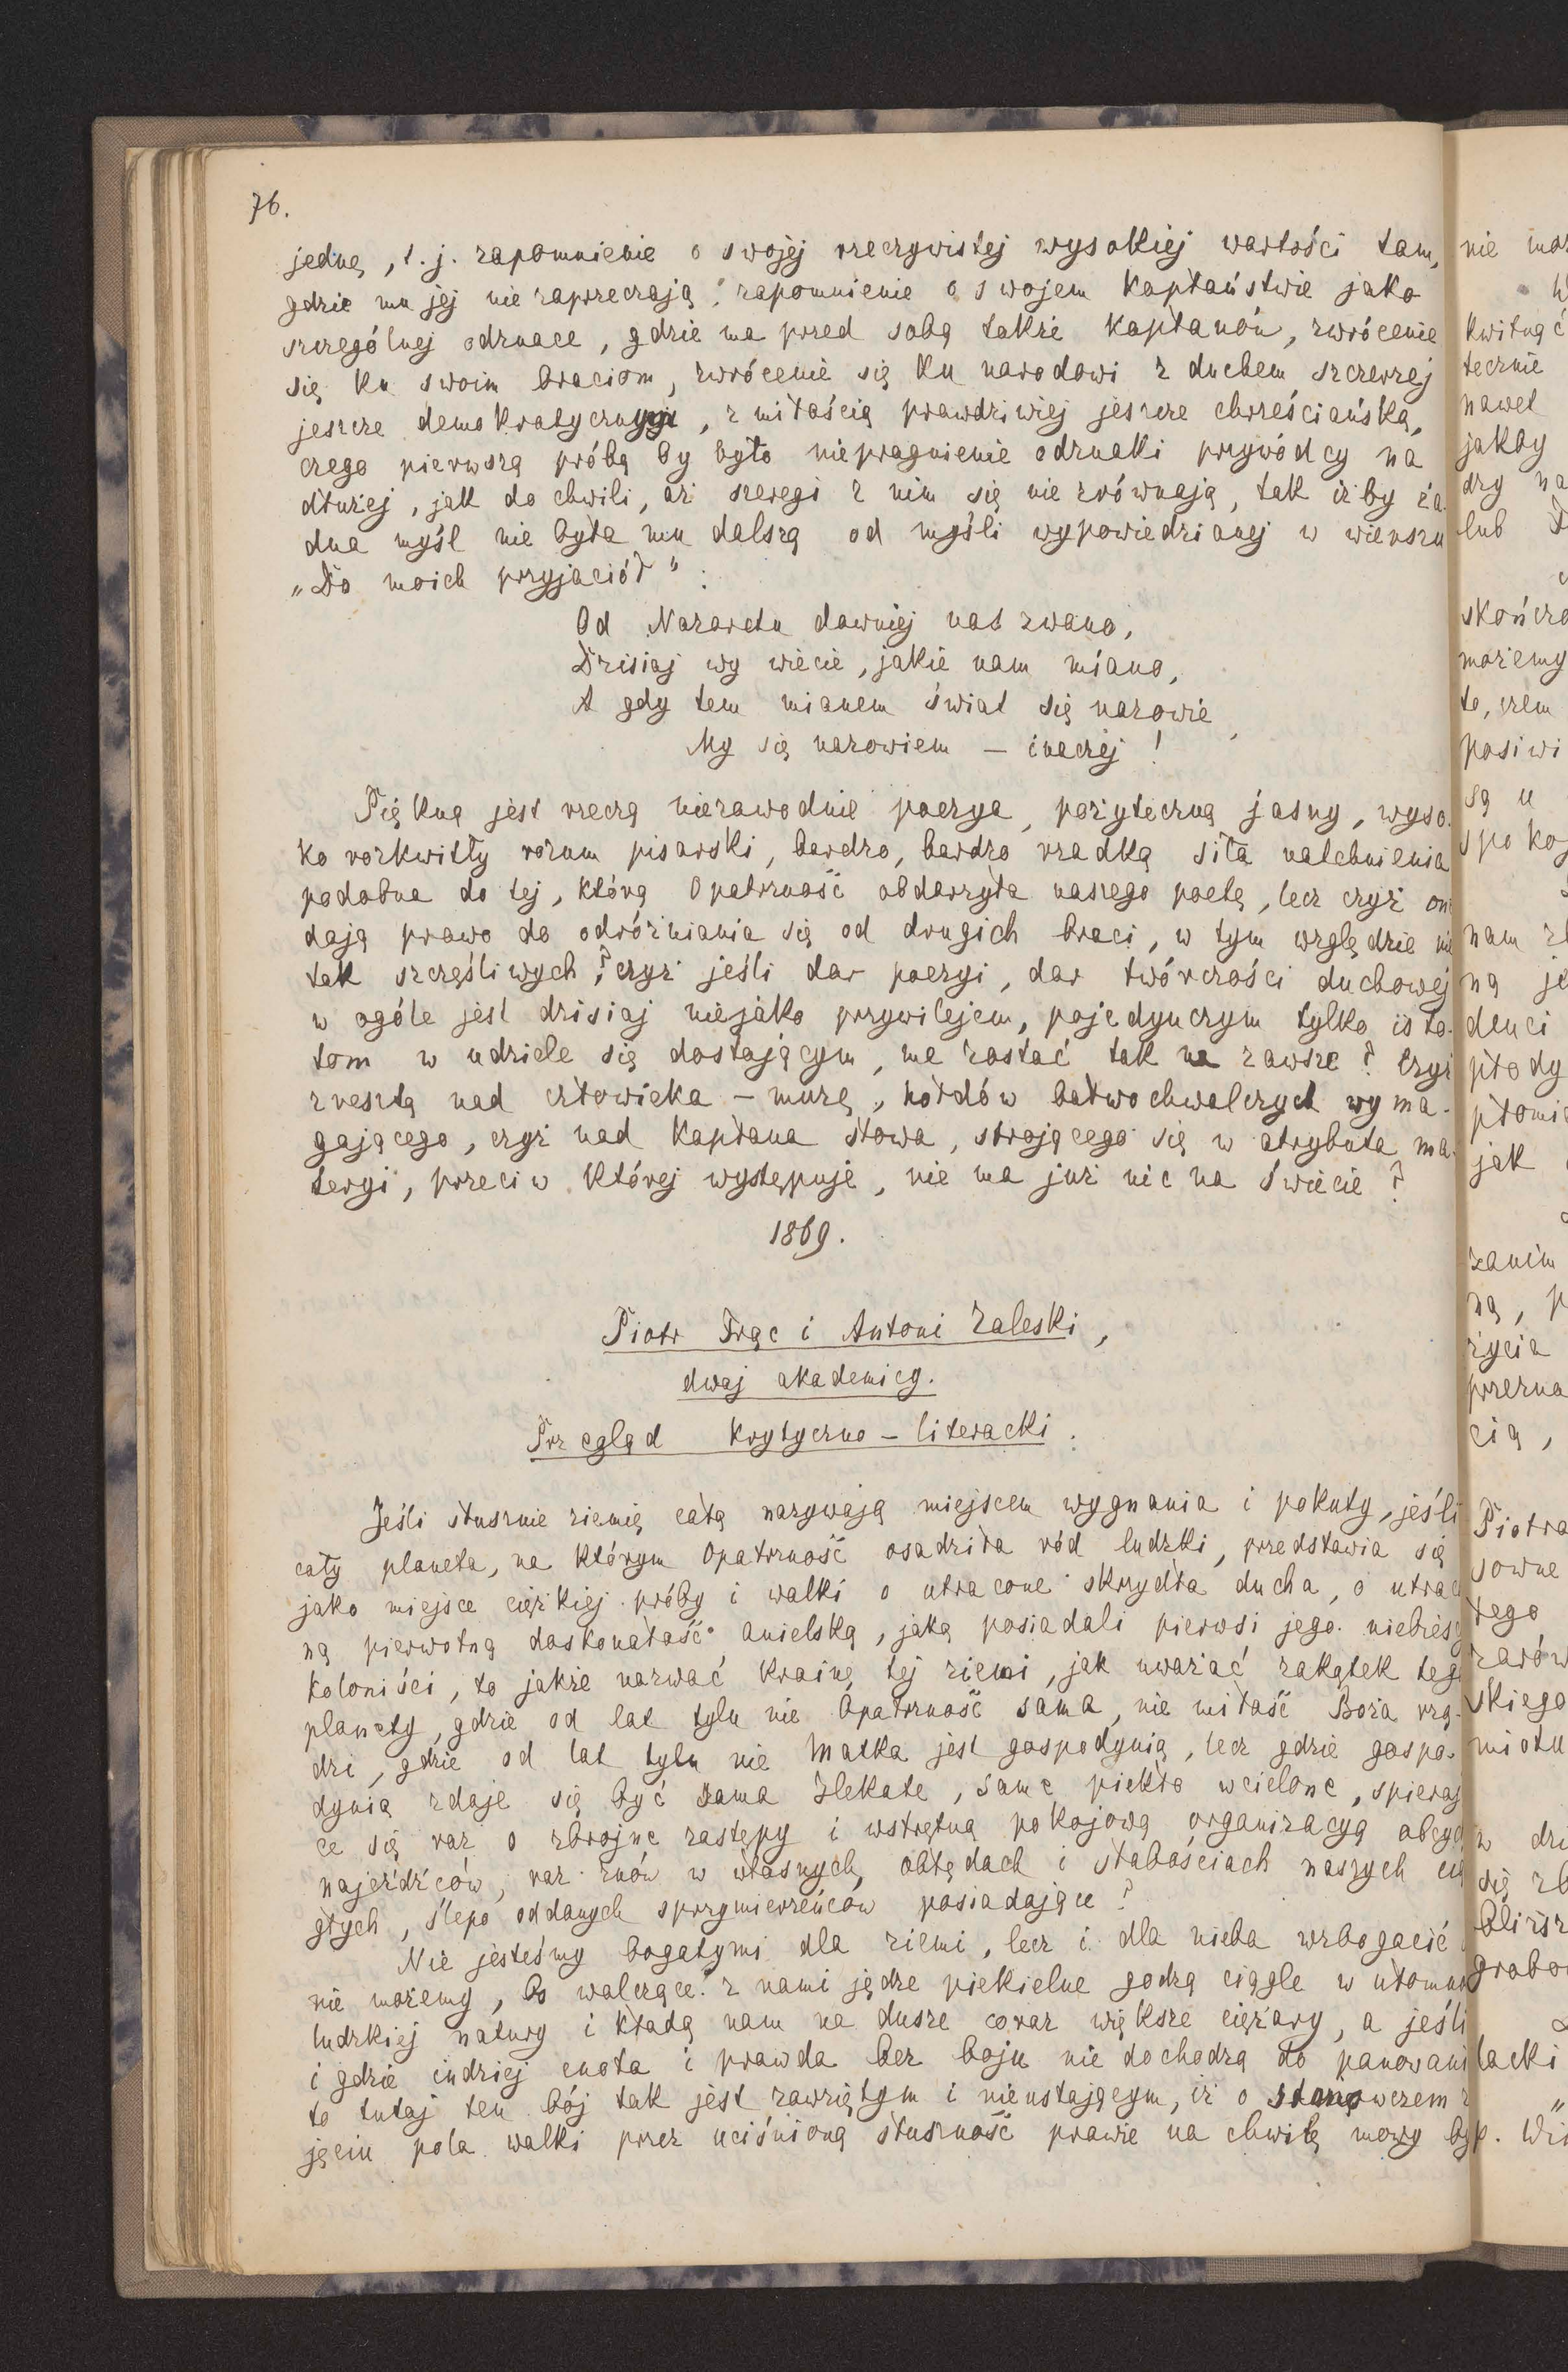 76.
jednę, t. j. zapomnienie o swojej rzeczywistej wysokiej wartości tam,
gdzie mu jej nie zaprzeczają; zapomnienie o swojem kapłaństwie jako
szczególnej odznace, gdzie ma przed sobą także kapłanów, zwrócenie
się ku swoim braciom, zwrócenie się ku narodowi z duchem szczerzej
jeszcze demokratycznym, z miłością prawdziwiej jeszcze chrześciańską,
czego pierwszą próbą by było niepragnienie odznaki przywódcy na
dłużej, jak do chwili, aż szeregi z nim się nie zrównają, tak iżby ża-
dna myśl nie była mu dalszą od myśli wypowiedzianej w wierszu
„Do moich przyjaciół“:
Od Nazaretu dawniej nas zwano,
Dzisiaj wy wiecie, jakie nam miano,
A gdy tem mianem świat się nazowie,
My się nazowiem – inaczej!
Piękną jest rzeczą niezawodnie poezya, pożyteczną jasny, wyso-
ko rozkwitły rozum pisarski, bardzo, bardzo rzadką siła natchnienia
podobna do tej, którą Opatrzność obdarzyła naszego poetę, lecz czyż one
dają prawo do odróżniania się od drugich braci, w tym względzie nie
tak szczęśliwych? czyż jeśli dar poezyi, dar twórczości duchowej
w ogóle jest dzisiaj niejako przywilejem, pojedynczym tylko isto-
tom w udziele się dostającym, ma zostać tak na zawsze? Czyż
zresztą nad człowieka – muzę, hołdów bałwochwalczych wyma-
gającego, czyż nad kapłana słowa, strojącego się w atrybuta ma-
teryi, przeciw której występuje, nie ma już nic na świecie?
1869.
Piotr Frąc i Antoni Zaleski,
dwaj akademicy.
Przegląd krytyczno – literacki.
Jeśli słusznie ziemię całą nazywają miejscem wygnania i pokuty, jeśli
cały planeta, na którym Opatrzność osadziła ród ludzki, przedstawia się
jako miejsce ciężkiej próby i walki o utracone skrzydła ducha, o utraco
ną pierwotną doskonałość anielską, jaką posiadali pierwsi jego niebiescy
koloniści, to jakże nazwać krainę tej ziemi, jak uważać zakątek tego
planety, gdzie od lat tylu nie Opatrzność sama, nie miłość Boża rzą-
dzi, gdzie od lat tylu nie Matka jest gospodynią, lecz gdzie gospo-
dynią zdaje się być sama Hekate, same piekło wcielone, spieraj
ce się raz o zbrojne zastępy i wstrętną pokojową organizacyą obcych
najeźdźców, raz znów w własnych obłędach i słabościach naszych cią
głych, ślepo oddanych sprzymierzeńców posiadające?
Nie jesteśmy bogatymi dla ziemi, lecz i dla nieba wzbogacić
nie możemy, bo walczące z nami jędze piekielne godzą ciągle w ułomn
ludzkiej natury i kładą nam na dusze coraz większe ciężary, a jeśli
i gdzie indziej cnota i prawda bez boju nie dochodzą do panowani
to tutaj ten bój tak jest zawziętym i nieustającym, iż o stanowczem z
jęciu pola walki przez uciśnioną słuszność prawie na chwilę mowy by